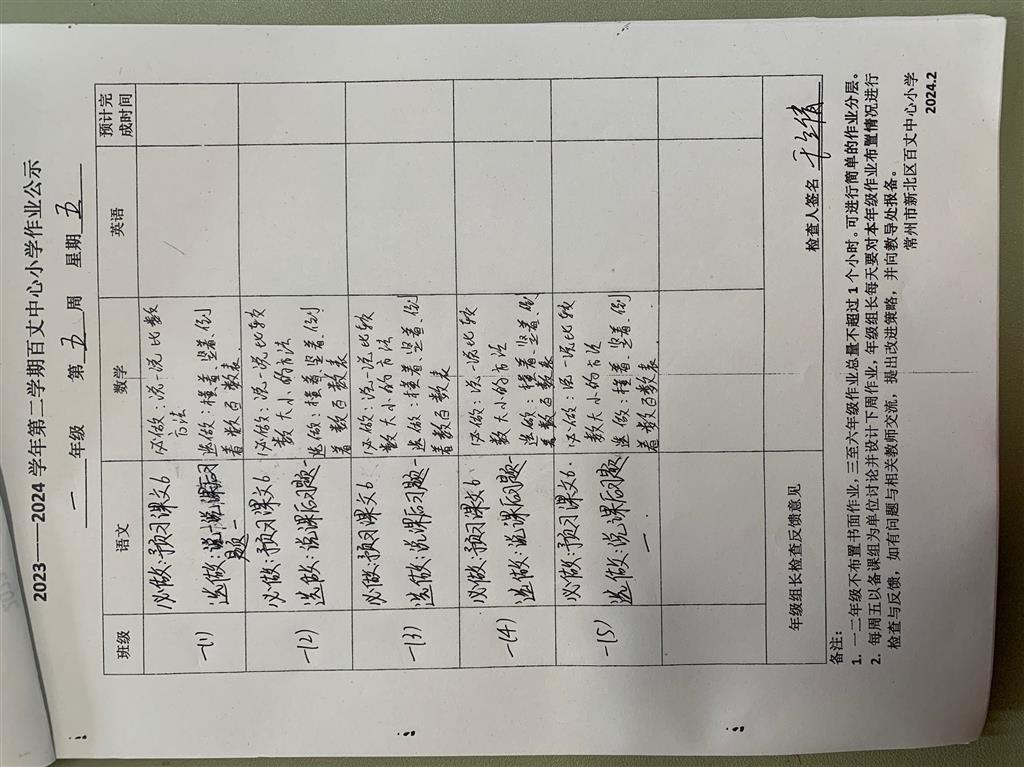 2023——2024学年第二学期百丈中心小学作业公示
一 年级 第 五 周 星期 五
班级 语文 数学 英语 预计完成时间
一(1)
必做:预习课文6
选做:说说课后习题一
必做:说一说比数
方法
选做:横着、竖着、倒
着数百数表.
一(2)
必做:预习课文6
选做:说课后习题一
必做:说一说比较
数大小的方法
选做:横着、竖着、倒
着数百数表.
一(3)
必做:预习课文6
选做:说课后习题一
必做:说一说比较
数大小的方法
选做:横着、竖着、倒
着数百数表.
一(4)
必做:预习课文6
选做:说课后习题一
必做:说一说比较
数大小的方法
选做:横着、竖着、倒
着数百数表.
一(5)
必做:预习课文6.
选做:说课后习题
一
必做:说一说比较
数大小的方法
选做:横着、竖着、倒
着数百数表.
年级组长检查反馈意见
检查人签名
备注:
1. 一二年级不布置书面作业,三至六年级作业总量不超过1个小时。可进行简单的作业分层。
2. 每周五以备课组为单位讨论并设计下周作业,年级组长每天要对本年级作业布置情况进行
检查与反馈,如有问题与相关教师交流,提出改进策略,并向教导处报备。
常州市新北区百丈中心小学
2024.2